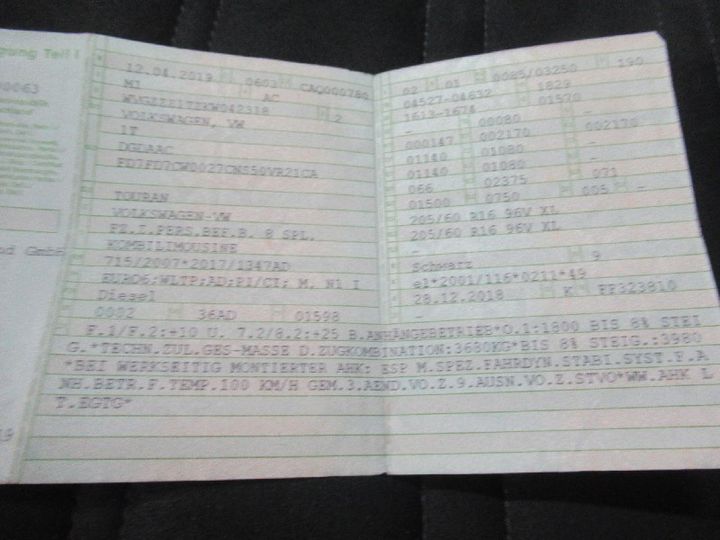 gung Teil I
0063
nd GmbH
12.04.2019 0603 CAQ000780
M1 AC
2
VOLKSWAGEN, VW
1T
DGDAAC
FD7FD7CW0027CNS50VR21CA
TOURAN
VOLKSWAGEN-VW
FZ.Z.PERS.BEF.B. 8 SPL.
KOMBILIMOUSINE
715/2007*2017/1347AD
EURO6;WLTP;AD;PI/CI; M, N1 I
Diesel
0002 36AD 01598
02 01 0085/03250 190
04527-04632 1829
1613-1674 01570
- 00080 -
000147 002170 002170
01140 01080 -
01140 01080 -
066 02375 071
01500 0750 005 -
205/60 R16 96V XL
205/60 R16 96V XL
-
Schwarz 9
e1*2001/116*0211*49
28.12.2018 K FF323810
-
F.1/F.2:+10 U. 7.2/8.2:+25 B.ANHÄNGEBETRIEB*O.1:1800 BIS 8% STEI
G.*TECHN.ZUL.GES-MASSE D.ZUGKOMBINATION:3680KG*BIS 8% STEIG.:3980
*BEI WERKSEITIG MONTIERTER AHK: ESP M.SPEZ.FAHRDYN.STABI.SYST.F.A
NH.BETR.F.TEMP.100 KM/H GEM.3.AEND.VO.Z.9.AUSN.VO.Z.STVO*WW.AHK L
T.EGTG*